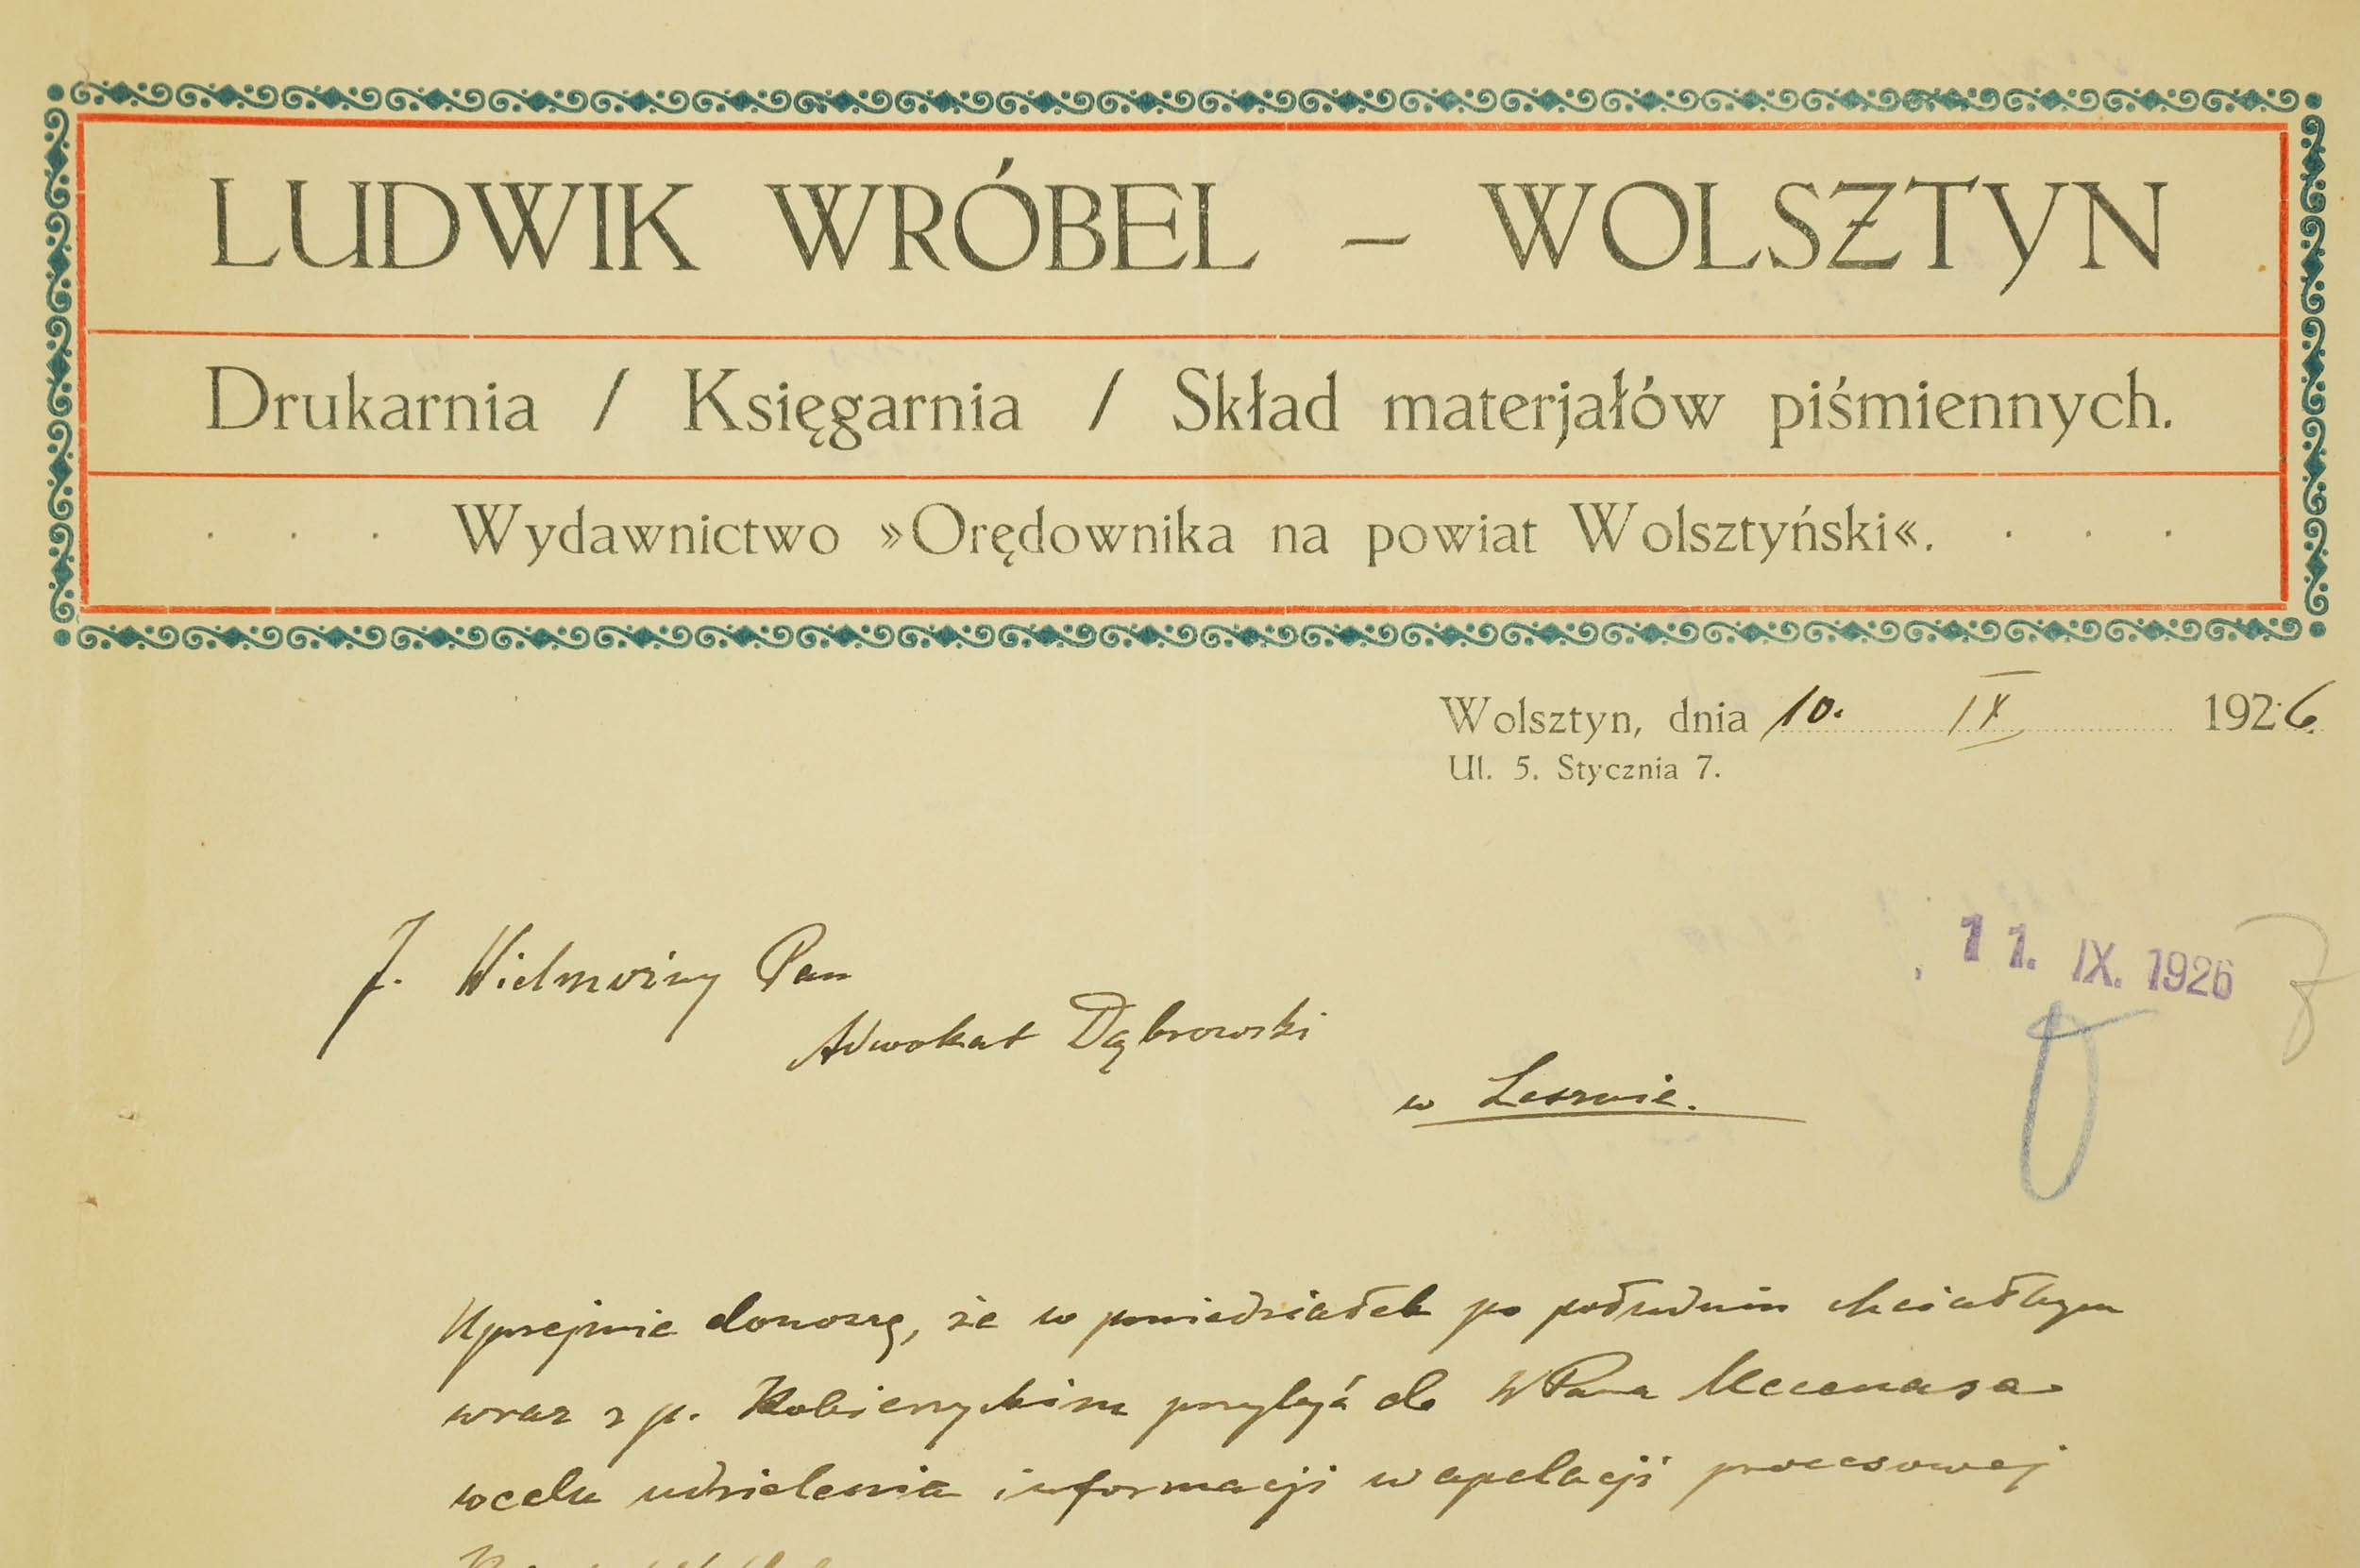 LUDWIK WRÓBEL – WOLSZTYN
Drukarnia / Księgarnia / Skład materjałów piśmiennych.
. . . Wydawnictwo »Orędownika na powiat Wolsztyński«. . . .
Wolsztyn, dnia 10. IX 1926
Ul. 5. Stycznia 7.
J. Wielmożny Pan
11. IX. 1926
Adwokat Dąbrowski
w Lesznie.
Uprzejmie donoszę, że w poniedziałek po południu chciałbym
wraz z p. Kobierzyckim przybyć do WPana Mecenasa
w celu udzielenia informacji w apelacji procesowej